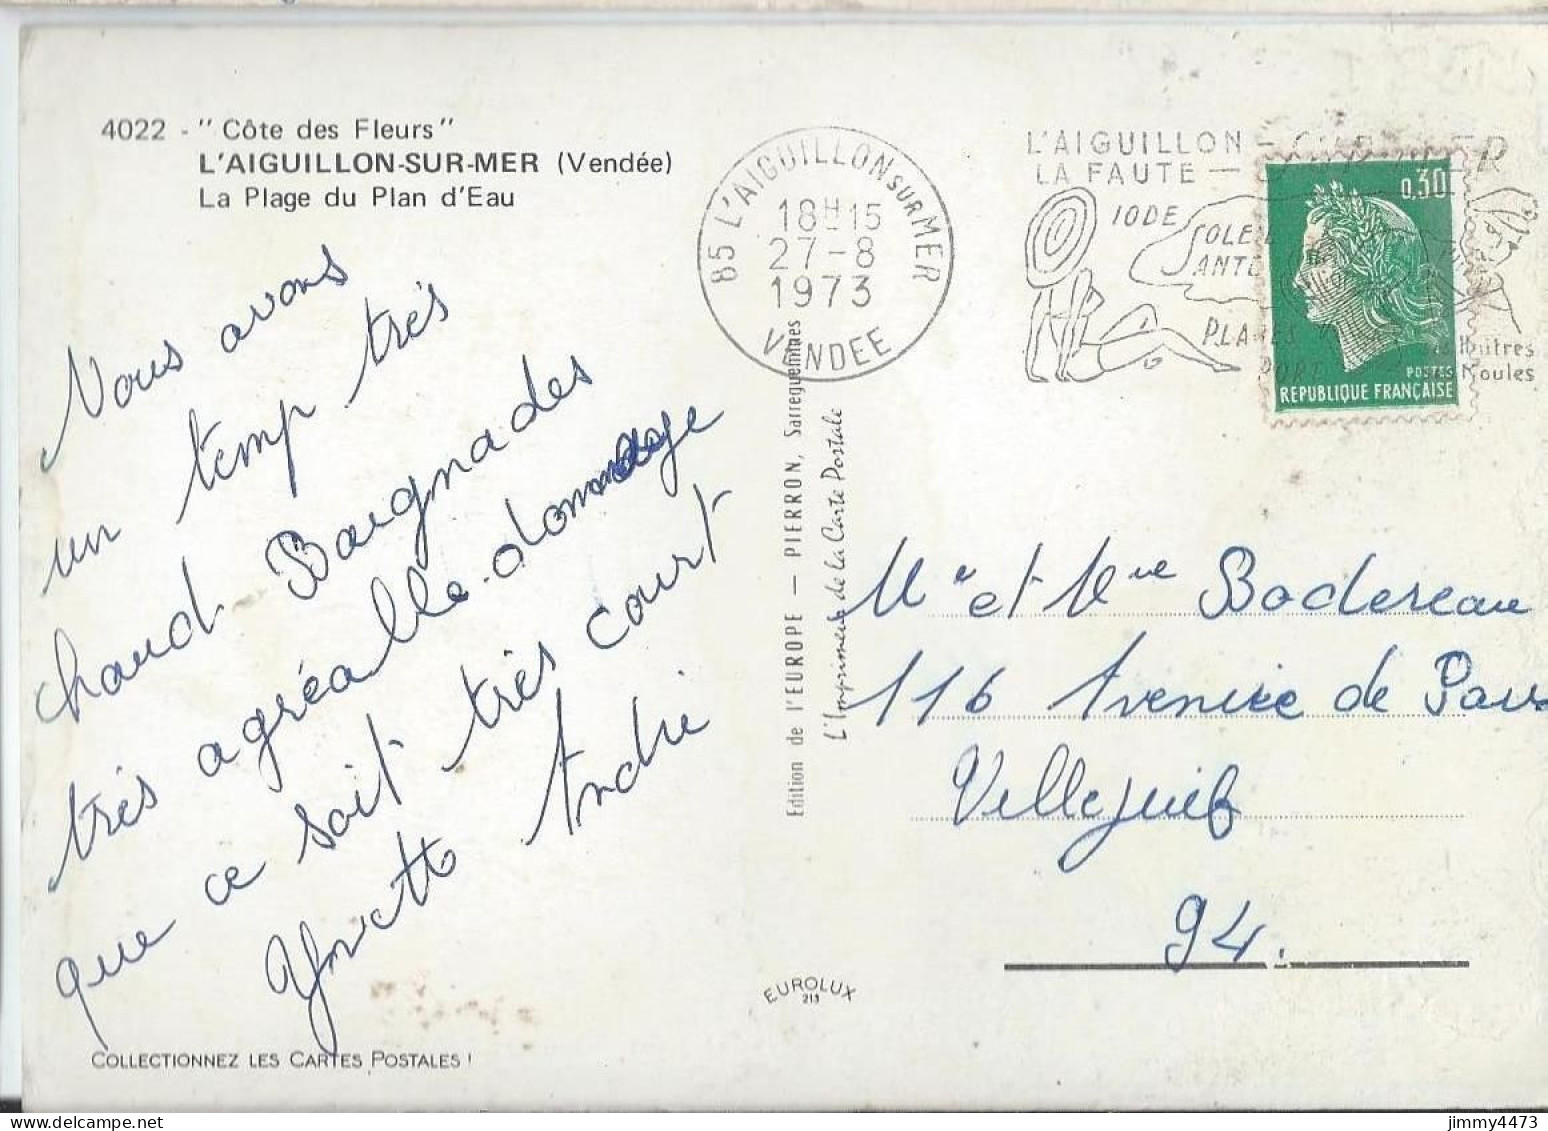 4022 - "Côte des Fleurs"
L'AIGUILLON-SUR-MER (Vendée)
La Plage du Plan d'Eau
Nous avons
un temp très
chaud Baignades
très agréable. dommage
que ce soit très court
Yvette André
COLLECTIONNEZ LES CARTES POSTALES !
Edition de l'EUROPE — PIERRON, Sarreguemines
L'Imprimeur de la Carte Postale
EUROLUX
213
85 L'AIGUILLON SUR MER
18H15
27-8
1973
VENDEE
L'AIGUILLON-SUR-MER
LA FAUTE —
IODE
SOLEIL
SANTE
PLAGES
PORT
Huitres
Moules
0,30
POSTES
REPUBLIQUE FRANÇAISE
Mr et Mme Bodereau
116 Avenue de Paris
Villejuif
94.
jimmy4473